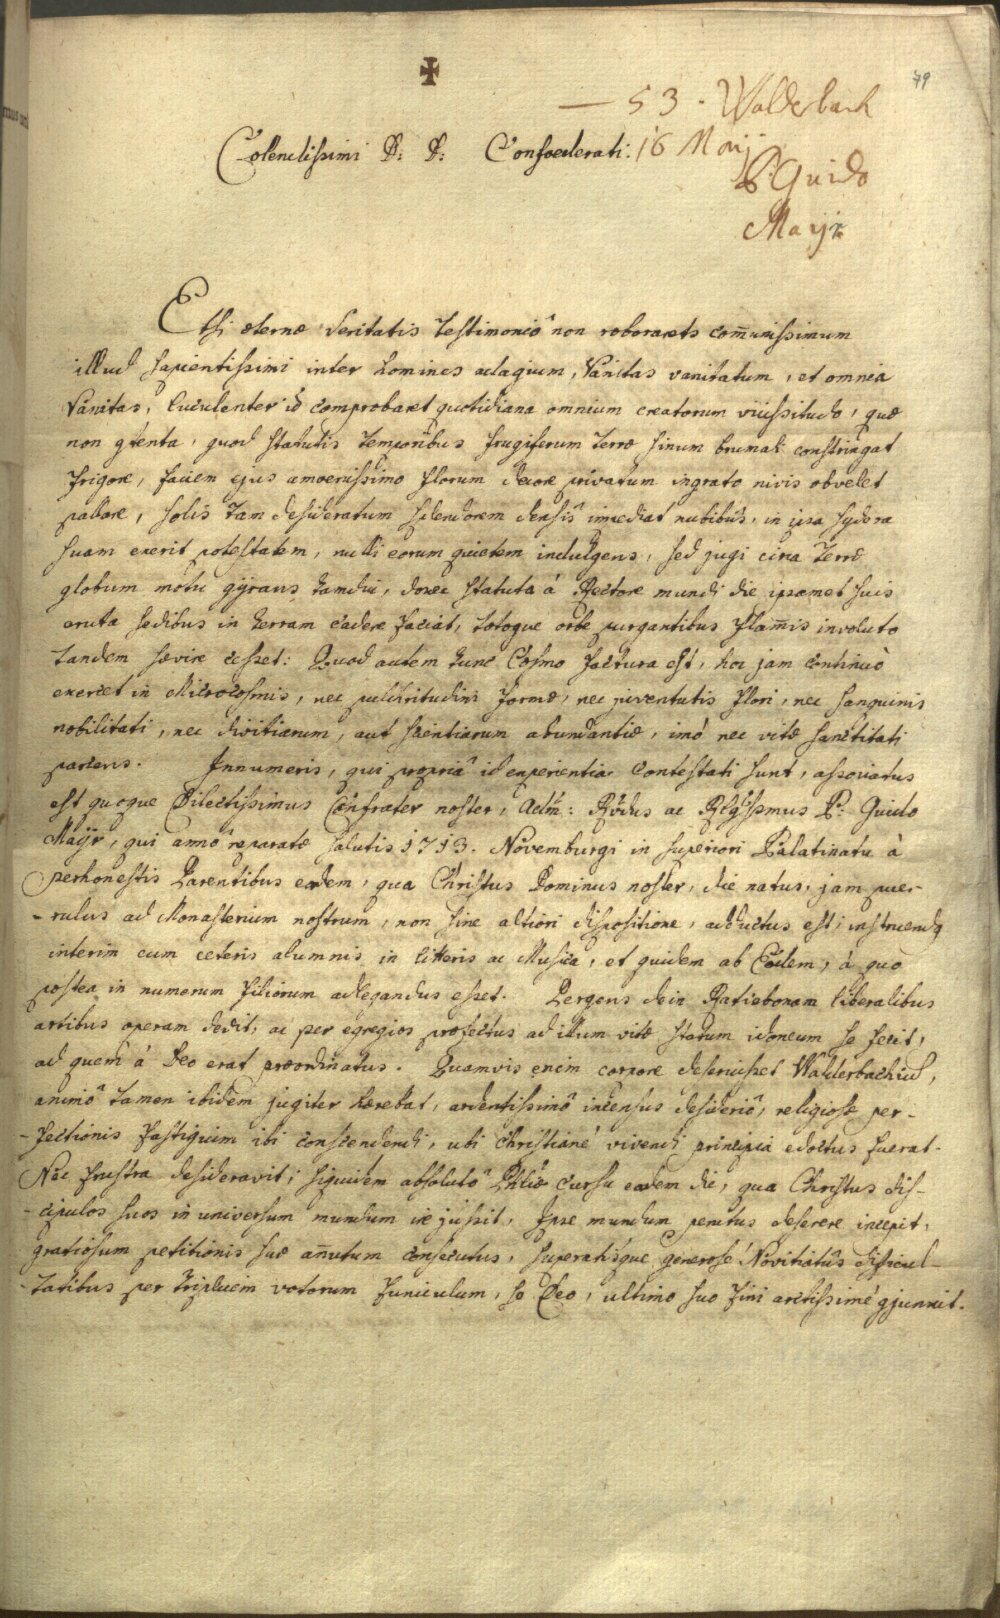 79
✠
— 53. Walderbach
Colendissimi D: D: Confoederati:
16 Maij
P. Guido
Mayr
Etsi æternæ Veritatis testimoniô non roboraretur com̄unissimum
illud sapientissimi inter homines adagium, Vanitas vanitatum, et omnia
Vanitas, luculenter id comprobaret quotidiana omnium creatorum vicissitudo, quæ
non contenta, quod statutis temporibus frugiferum terræ sinum brumali constringat
frigore, faciem ejus amoenissimo florum decore privatum ingrato nivis obvelet
pallore, solis tam desideratum splendorem densis impediat nubibus, in ipsa sydera
suam exerit potestatem, nulli eorum quietem indulgens, sed jugi circa terræ
globum motu gyrans tamdiu, donec statuta â Rectore mundi die ipsamet suis
eruta sedibus in terram cadere faciat, totoque orbe purgantibus flam̄is involuto
tandem sævire cesset: Quod autem tunc Cosmo factura est, hoc jam continuò
exercet in Microcosmis, nec pulchritudini formæ, nec juventutis flori, nec sanguinis
nobilitati, nec divitiarum, aut scientiarum abundantiæ, imò nec vitæ sanctitati
parcens. Innumeris, qui propriâ id experientiâ contestati sunt, associatus
est quoque Dilectissimus Confrater noster, Adm: Rvdus ac Rlgssmus P: Guido
Mayr, qui annô reparatæ salutis 1713. Novemburgi in superiori Palatinatu à
perhonestis Parentibus eadem, qua Christus Dominus noster, die natus, jam pue-
-rulus ad Monasterium nostrum, non sine altiori dispositione, adductus est, instruendq
interim cum ceteris alumnis in litteris ac Musica, et quidem ab Eodem, à quo
postea in numerum filiorum adlegandus esset. Pergens dein Ratisbonam liberalibus
artibus operam dedit, ac per egregios profectus ad illum vitæ statum idoneum se fecit,
ad quem à Deo erat præordinatus. Quamvis enim corpore deseruisset Walderbachiū,
animô tamen ibidem jugiter hærebat, ardentissimô incensus desideriô, religiosæ per-
-fectionis fastigium ibi conscendendi, ubi christianè vivendi principia edoctus fuerat.
Nec frustra desideravit; siquidem absolutô Phliæ cursu eadem die, qua Christus dis-
-cipulos suos in universum mundum ire jussit, Ipse mundum penitus deserere incepit,
gratiosum petitionis suæ an̄utum consecutus, superatisque generosè Novitiatûs dificul-
-tatibus per triplicem votorum funiculum, se Deo, ultimo suo fini arctissimè gjunxit.